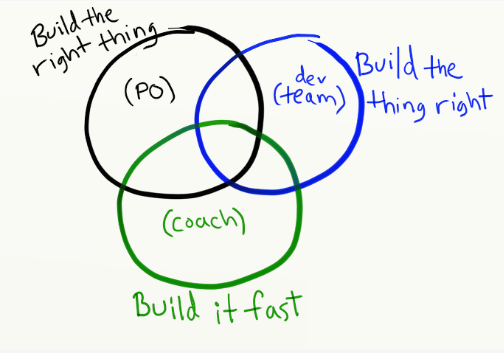 Build the
right thing
(PO)
dev
(team)
Build the
thing right
(coach)
Build it fast